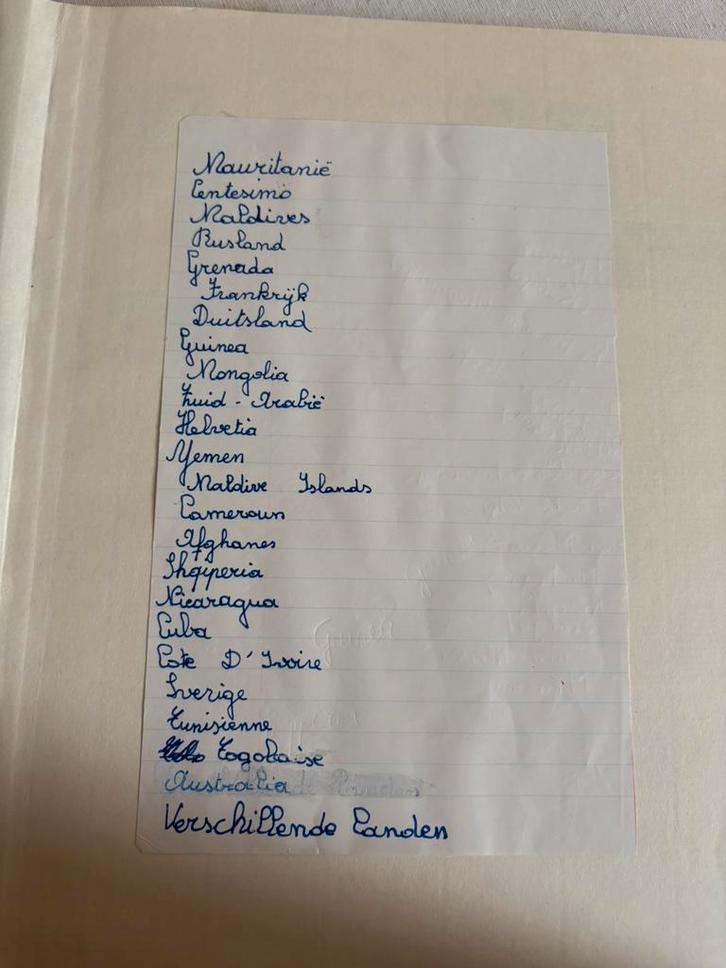 Mauritanië
Centesimo
Maldives
Rusland
Grenada
Frankrijk
Duitsland
Guinea
Mongolia
Zuid - Arabië
Helvetia
Yemen
Maldive Islands
Cameroun
Afghanes
Shqiperia
Nicaragua
Cuba
Cote D'Ivoire
Sverige
Tunisienne
Togolaise
Australia
Verschillende Landen